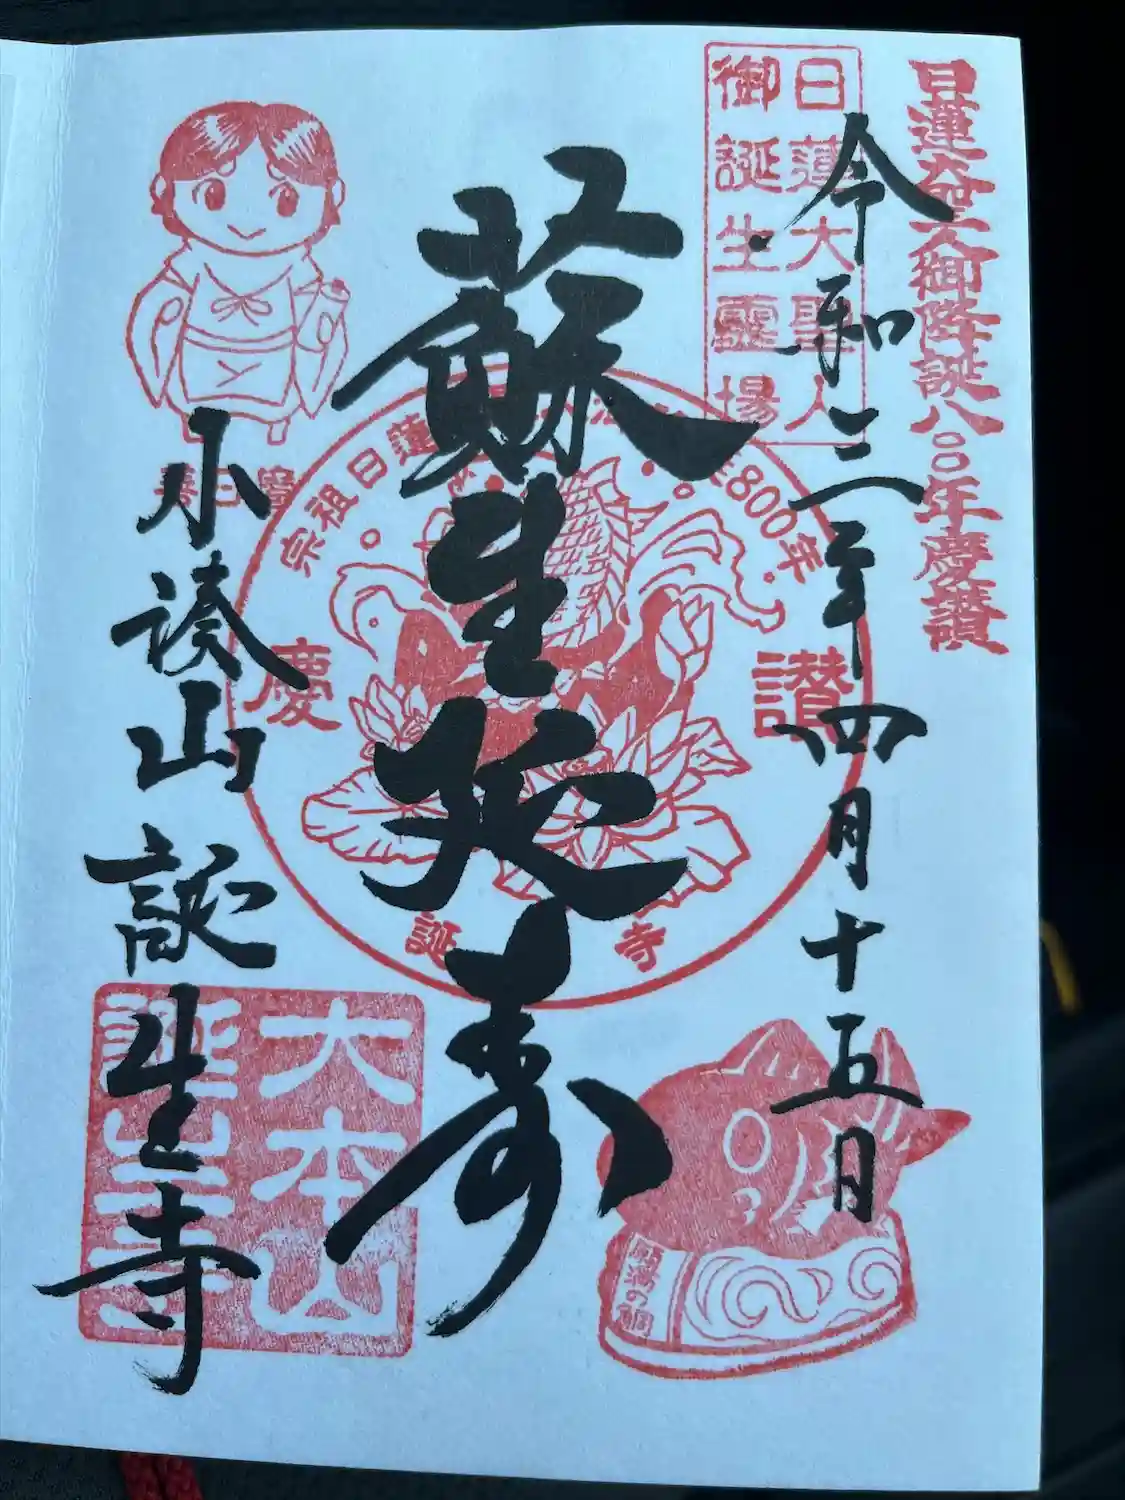 日蓮大聖人御降誕八〇〇年慶讃
日蓮大聖人
御誕生霊場
令和三年四月十五日
宗祖日蓮
800年
慶
讃
誕
寺
蘇生延寿
小湊山誕生寺
大本山
誕生寺
の鯛